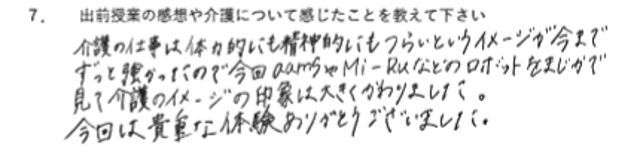 7. 出前授業の感想や介護について感じたことを教えて下さい
介護の仕事は体力的にも精神的にもつらいというイメージが今まで
ずっと強かったので今回aamsやMi-Ruなどのロボットをまじかで
見て介護のイメージの印象は大きくかわりました。
今回は貴重な体験ありがとうございました。